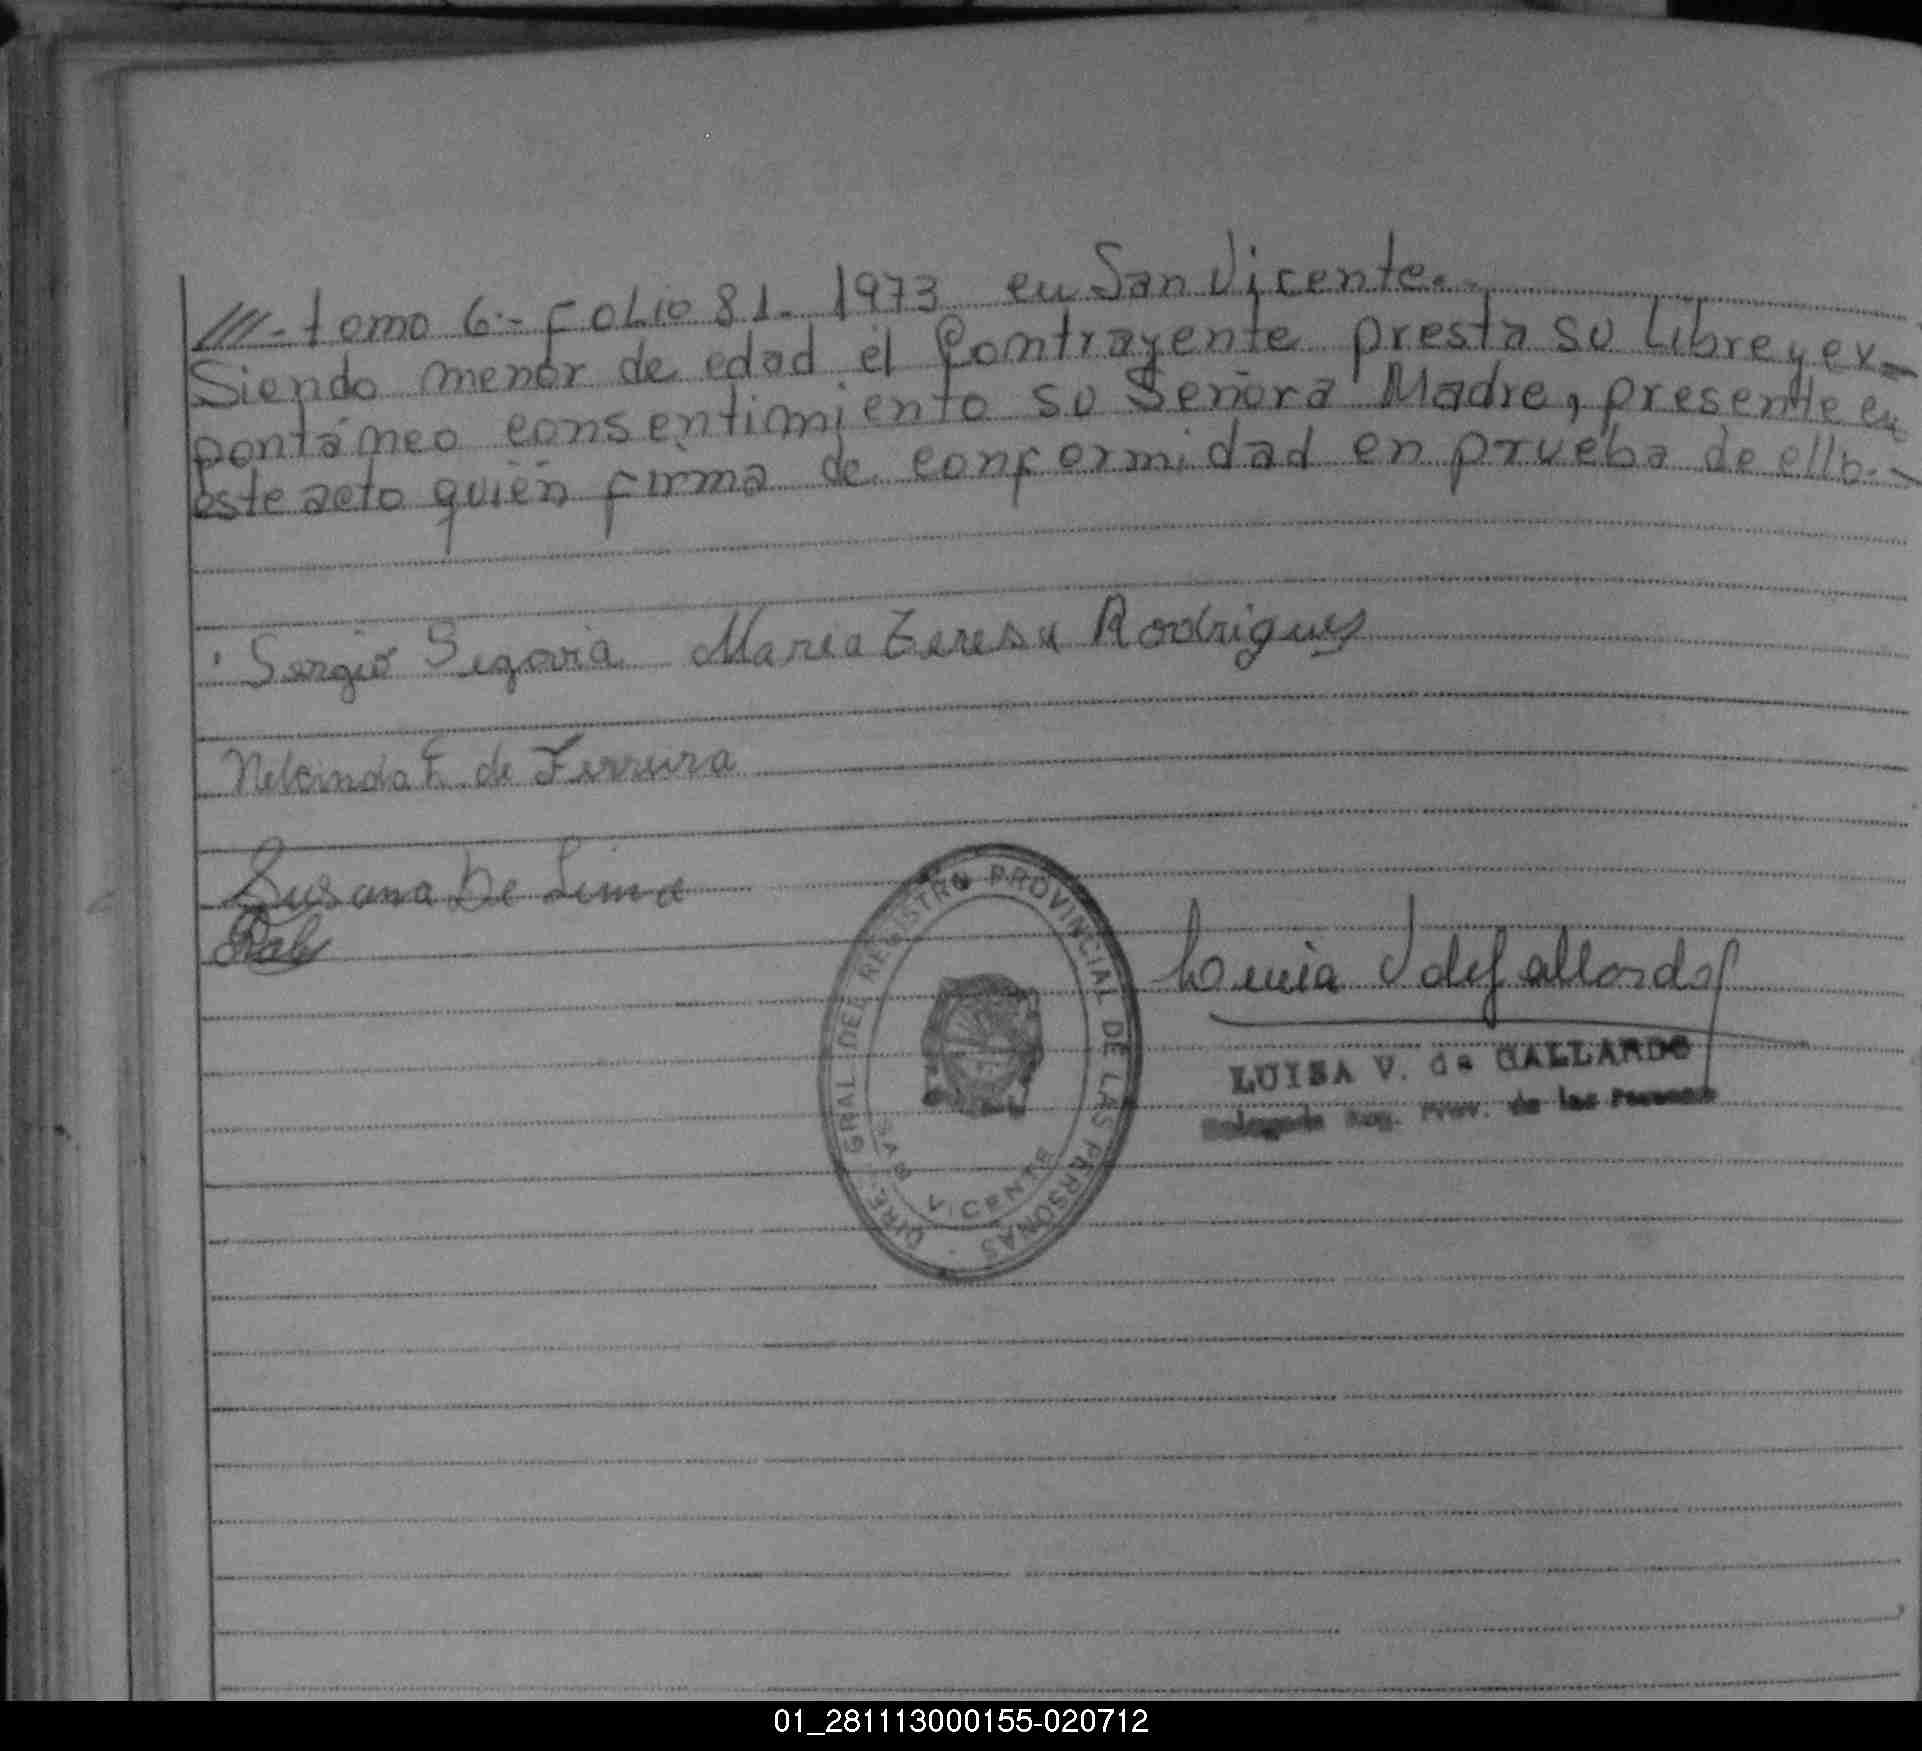 ///-tomo 6.- Folio 81.- 1973 en San Vicente.-
Siendo menor de edad el Contrayente presta su libre y ex-
pontáneo consentimiento su Señora Madre, presente en
este acto quién firma de conformidad en prueba de ello.-
Sergio Segovia Maria Teresa Rodrigues
F. de Ferreira
Susana De Lima
DIRE. GRAL DEL REGISTRO PROVINCIAL DE LAS PERSONAS
SAN VICENTE
LUISA V. de GALLARDO
Delegada Reg. Prov. de las Personas
01_281113000155-020712